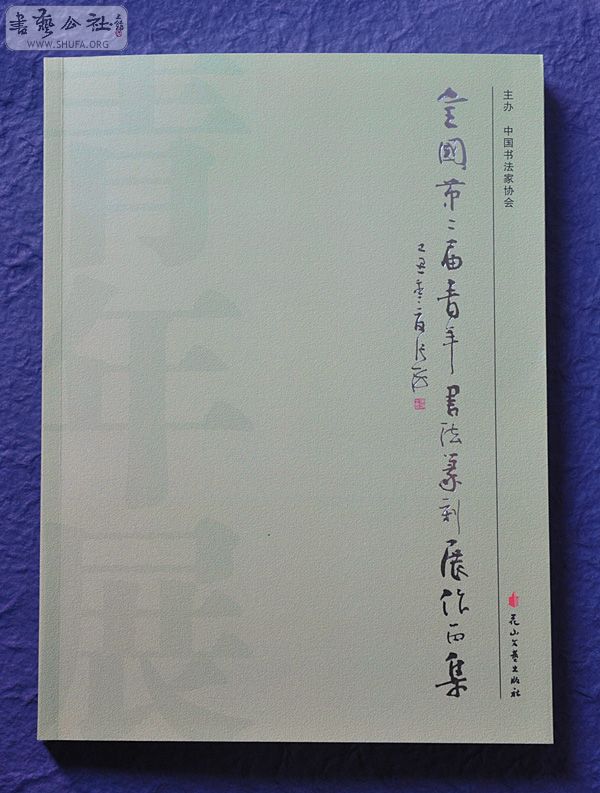 書藝公社
WWW.SHUFA.ORG
主办 中国书法家协会
全國第二届青年書法篆刻展作品集
己丑季夏張海
青年展
花山文藝出版社